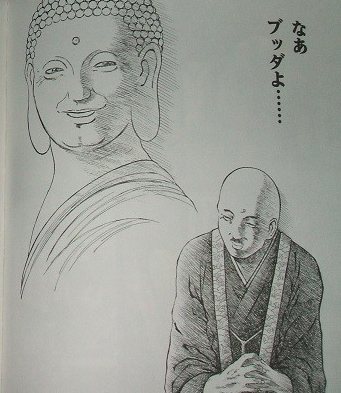 なあ
ブッダよ……